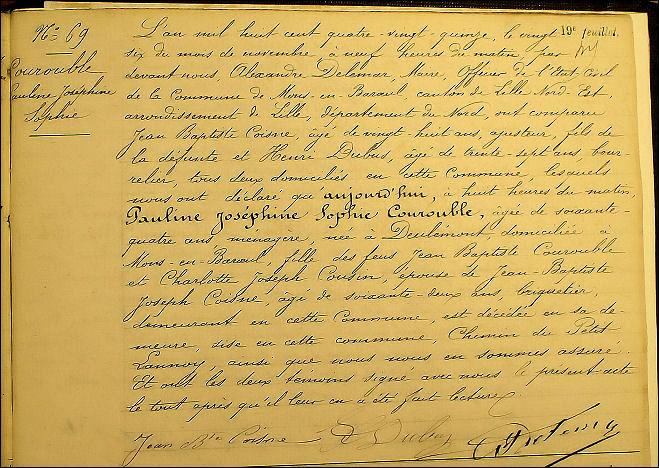 N° 69
Courouble
Pauline Joséphine
Sophie
19e feuillet.
L'an mil huit cent quatre-vingt-quinze, le vingt
six du mois de novembre, à neuf heures du matin, par
devant nous, Alexandre Delemar, Maire, Officier de l'Etat-Civil
de la Commune de Mons-en-Barœul, canton de Lille Nord-Est,
arrondissement de Lille, département du Nord, ont comparu
Jean Baptiste Coisne, âgé de vingt-huit ans, ajusteur, fils de
la défunte et Henri Dubus, âgé de trente-sept ans, bour-
relier, tous deux domiciliés en cette Commune, lesquels
nous ont déclaré qu'aujourd'hui, à huit heures du matin,
Pauline Josephine Sophie Courouble, agée de soixante-
quatre ans, ménagère, née à Deulémont, domiciliée à
Mons-en-Barœul, fille des feus Jean Baptiste Courouble
et Charlotte Joseph Cousin, épouse de Jean-Baptiste
Joseph Coisne, âgé de soixante-deux ans, briquetier,
demeurant en cette Commune, est décédée en sa de-
meure, sise en cette commune, Chemin du Petit
Lannoy, ainsi que nous nous en sommes assuré.
Et ont les deux témoins signé avec nous le présent acte
le tout après qu'il leur en a été fait lecture.
Jean Bte Coisne H Dubus